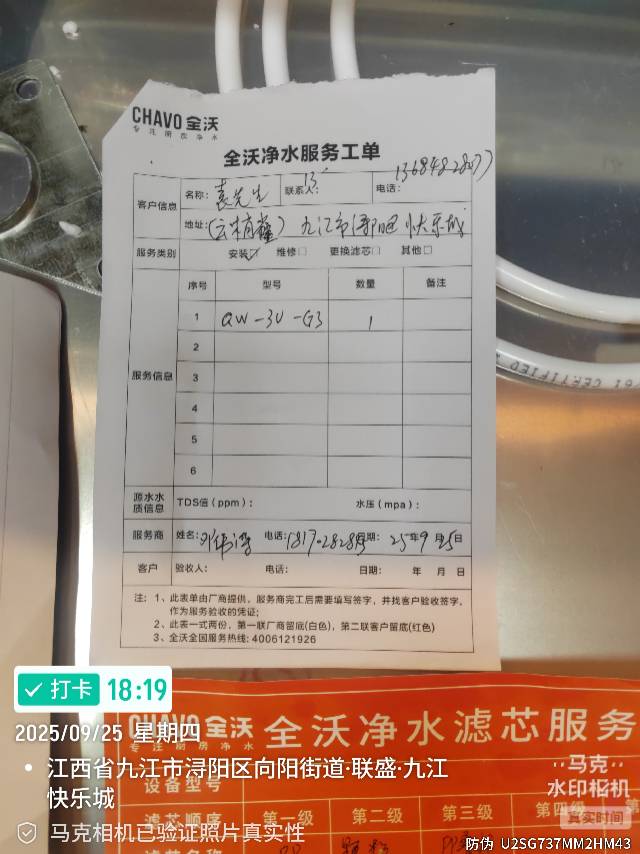 CHAVO 全沃
专注厨房净水
全沃净水服务工单
客户信息 名称: 袁先生 联系人: 13 电话: 13684828077
地址: (云楠雀) 九江市 快乐城
服务类别 安装☑ 维修□ 更换滤芯□ 其他□
服务信息 序号 型号 数量 备注
1 QW-3U-G3 1
2
3
4
5
6
源水水质信息 TDS值(ppm): 水压(mpa):
服务商 姓名: 电话: 日期: 25年9月25日
客户 验收人: 电话: 日期: 年 月 日
注: 1、此表单由厂商提供, 服务商完工后需要填写签字, 并找客户验收签字,
作为服务验收的凭证;
2、此表一式两份, 第一联厂商留底(白色), 第二联客户留底(红色)
3、全沃全国服务热线: 4006121926
CERTIFIED
打卡 18:19
2025/09/25 星期四
江西省九江市浔阳区向阳街道·联盛·九江
快乐城
马克相机已验证照片真实性
CHAVO 全沃 全沃净水滤芯服务
专注厨房净水
设备型号
滤芯顺序 第一级 第二级 第三级 第四级
滤芯名称
马克
水印相机
真实时间
防伪 U2SG737MM2HM43